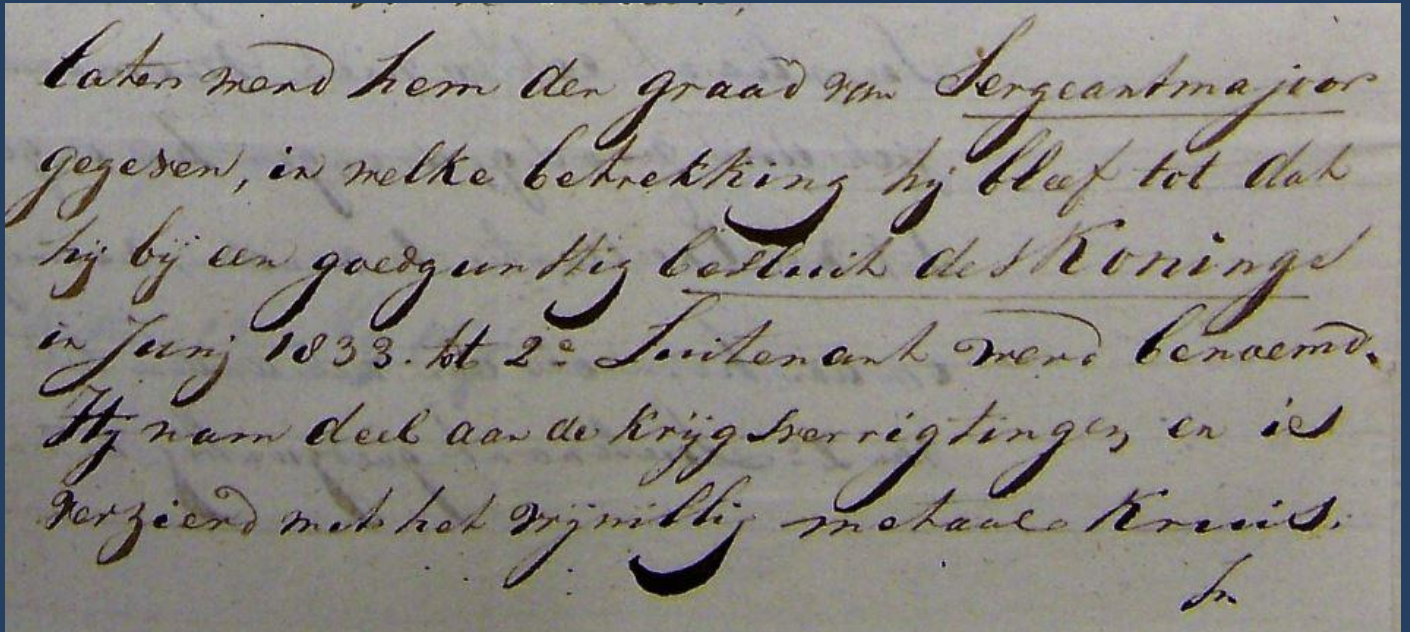 later werd hem den graad van Sergeantmajoor
gegeven, in welke betrekking hij bleef tot dat
hij bij een goedgunstig besluit des Konings
in Junij 1833. tot 2e Luitenant werd benoemd.
Hij nam deel aan de krijgsverrigtingen en is
verzierd met het vrijwillig metaale Kruis.
In